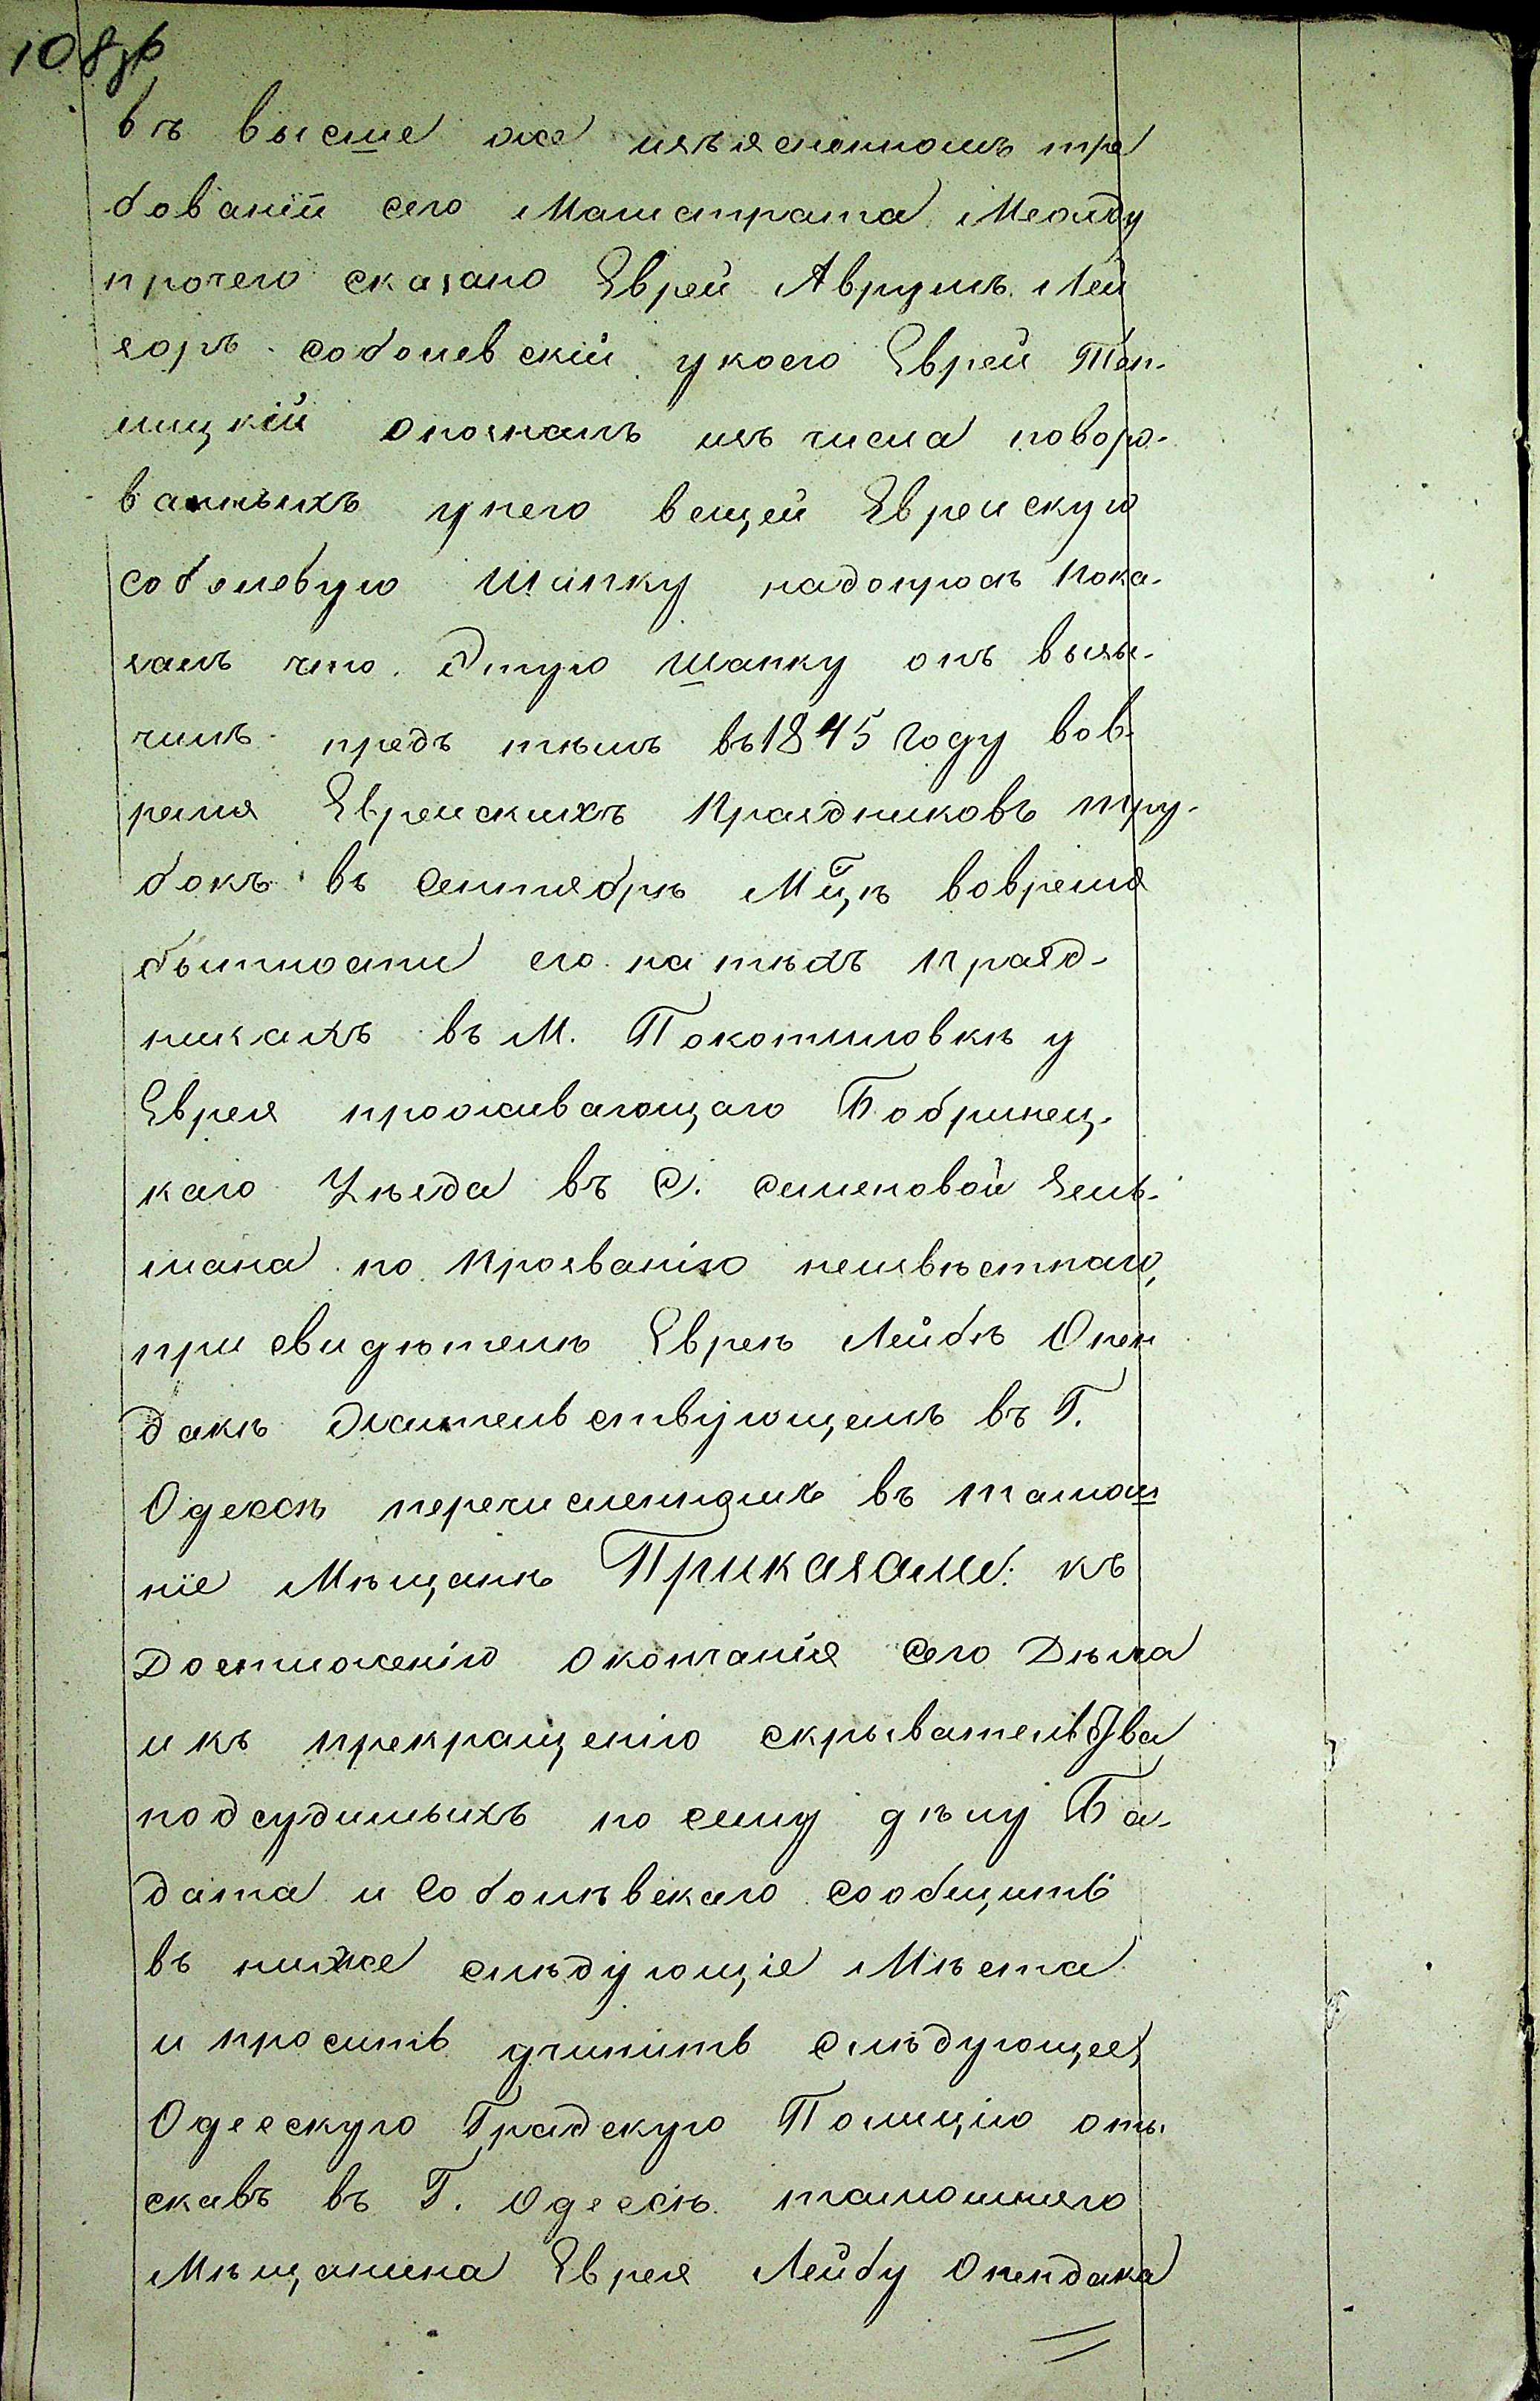 108 зв
въ высше же изъясненномъ тре
бованіи сего Магистрата Между
прочего сказано Еврей Аврумъ Лей
зоръ Соболевскій укоего Еврей Теп-
лицкій опозналъ изъ числа поворо-
ванныхъ унего вещей Еврейскую
соболевую Шапку надопросъ Пока-
залъ что Этую шапку онъ вызы-
чилъ предъ тѣмъ въ 1845 Году вов-
ремя Еврейскихъ Праздниковъ тру-
бокъ въ Сентябрѣ Мцѣ вовремя
бытности его на тѣхъ празд-
никахъ въ М. Покотиловкѣ у
Еврея проживающаго Бобринец-
каго Уѣзда въ С. Семеновой Зель-
мана по Прозванію неизвѣстнаго,
при свидѣтелѣ Евреѣ Лейбѣ Опен
дакѣ Жительствующемъ въ Г.
Одессѣ перечисленномъ въ тамош
ніе Мѣщанѣ Приказали: къ
Достиженію окончанія сего Дѣла
икъ прекращенію скрывательства
подсудимыхъ по сему дѣлу Ба-
дата и Соболѣвскаго сообщить
въ ниже слѣдующіе Мѣста
и просить учинить слѣдующее,
Одесскую Градскую Полицію оты-
скавъ въ Г. Одессѣ тамошняго
Мѣщанина Еврея Лейбу Опендака